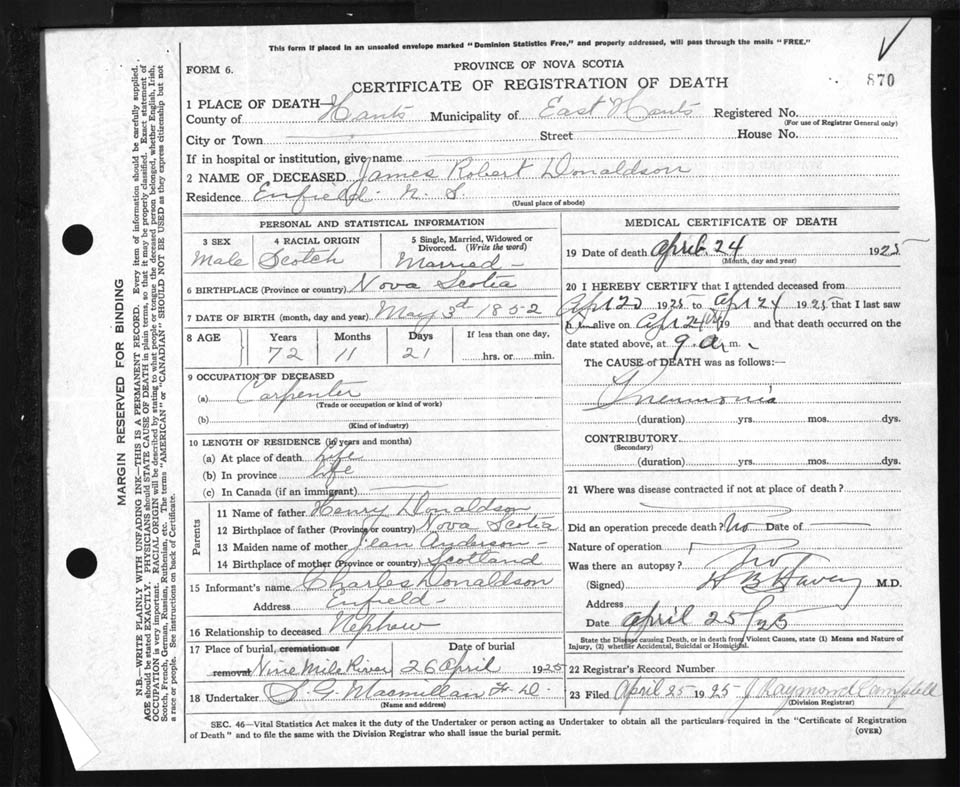 This form if placed in an unsealed envelope marked "Dominion Statistics Free," and properly addressed, will pass through the mails "FREE."
FORM 6.
PROVINCE OF NOVA SCOTIA
870
CERTIFICATE OF REGISTRATION OF DEATH
1 PLACE OF DEATH—
County of Hants Municipality of East Hants Registered No.
(For use of Registrar General only)
City or Town Street House No.
If in hospital or institution, give name
2 NAME OF DECEASED James Robert Donaldson
Residence Enfield N. S.
(Usual place of abode)
PERSONAL AND STATISTICAL INFORMATION
3 SEX 4 RACIAL ORIGIN 5 Single, Married, Widowed or Divorced. (Write the word)
Male Scotch Married
6 BIRTHPLACE (Province or country) Nova Scotia
7 DATE OF BIRTH (month, day and year) May 3d 1852
8 AGE Years Months Days If less than one day,
72 11 21 hrs. or min.
9 OCCUPATION OF DECEASED
(a) Carpenter
(Trade or occupation or kind of work)
(b)
(Kind of industry)
10 LENGTH OF RESIDENCE (in years and months)
(a) At place of death life
(b) In province life
(c) In Canada (if an immigrant)
Parents
11 Name of father Henry Donaldson
12 Birthplace of father (Province or country) Nova Scotia
13 Maiden name of mother Jean Anderson
14 Birthplace of mother (Province or country) Scotland
15 Informant's name Charles Donaldson
Address Enfield
16 Relationship to deceased Nephew
17 Place of burial, cremation or
removal Nine Mile River 26 April 1925
18 Undertaker S. G. Macmillan F. D.
(Name and address)
MEDICAL CERTIFICATE OF DEATH
19 Date of death April 24 1925
(Month, day and year)
20 I HEREBY CERTIFY that I attended deceased from
Apr 20 1925 to Apr 24 1925 that I last saw
h im alive on Apr 24 19 and that death occurred on the
date stated above, at 9 a. m.
The CAUSE of DEATH was as follows:—
Pneumonia
(duration) yrs. mos. dys.
CONTRIBUTORY
(Secondary)
(duration) yrs. mos. dys.
21 Where was disease contracted if not at place of death?
Did an operation precede death? No Date of
Nature of operation
Was there an autopsy? No
(Signed) M.D.
Address
Date April 25/25
State the Disease causing Death, or in death from Violent Causes, state (1) Means and Nature of
Injury, (2) whether Accidental, Suicidal or Homicidal.
22 Registrar's Record Number
23 Filed April 25 1925 J Raymond Campbell
(Division Registrar)
SEC. 46—Vital Statistics Act makes it the duty of the Undertaker or person acting as Undertaker to obtain all the particulars required in the "Certificate of Registration
of Death" and to file the same with the Division Registrar who shall issue the burial permit.
(OVER)
MARGIN RESERVED FOR BINDING
N.B.—WRITE PLAINLY WITH UNFADING INK—THIS IS A PERMANENT RECORD. Every item of information should be carefully supplied.
AGE should be stated EXACTLY. PHYSICIANS should STATE CAUSE OF DEATH in plain terms, so that it may be properly classified. Exact statement of
OCCUPATION is very important. RACIAL ORIGIN will be described by stating to what people or tongue the deceased person belonged, whether English, Irish,
Scotch, French, German, Russian, Ruthenian, etc. The terms "AMERICAN" or "CANADIAN" SHOULD NOT BE USED as they express citizenship but not
a race or people. See instructions on back of Certificate.